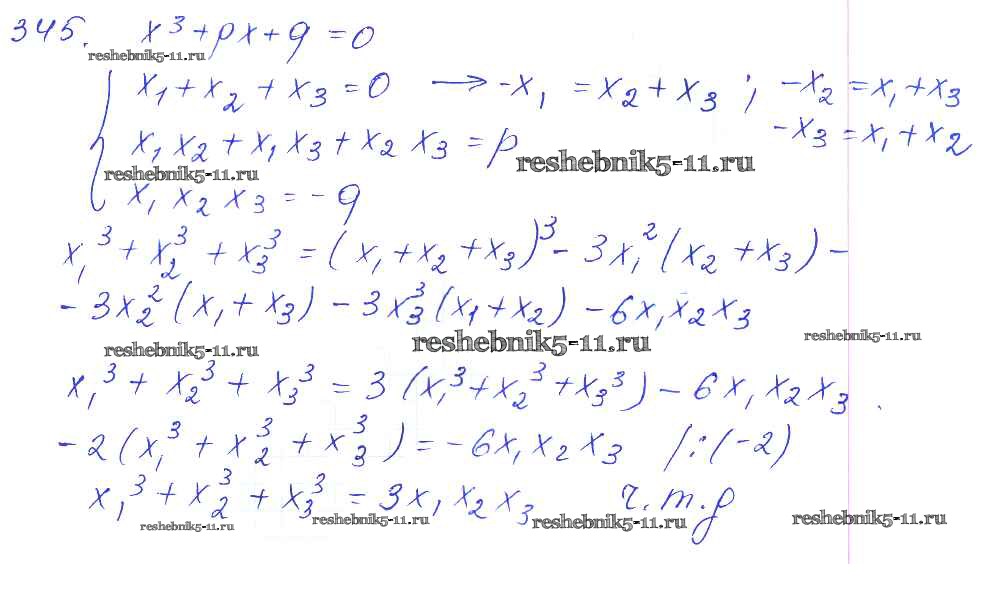 345. x³ + px + q = 0
reshebnik5-11.ru
x₁ + x₂ + x₃ = 0 → -x₁ = x₂ + x₃ ; -x₂ = x₁ + x₃
-x₃ = x₁ + x₂
x₁ x₂ + x₁ x₃ + x₂ x₃ = p
reshebnik5-11.ru
reshebnik5-11.ru
x₁ x₂ x₃ = - q
x₁³ + x₂³ + x₃³ = (x₁ + x₂ + x₃)³ - 3x₁² (x₂ + x₃) -
- 3x₂² (x₁ + x₃) - 3x₃³ (x₁ + x₂) - 6x₁x₂x₃
reshebnik5-11.ru
reshebnik5-11.ru
reshebnik5-11.ru
x₁³ + x₂³ + x₃³ = 3 (x₁³ + x₂³ + x₃³) - 6x₁x₂x₃.
- 2 (x₁³ + x₂³ + x₃³) = - 6x₁x₂x₃ /:(-2)
x₁³ + x₂³ + x₃³ = 3x₁x₂x₃ г.т.д
reshebnik5-11.ru
reshebnik5-11.ru
reshebnik5-11.ru
reshebnik5-11.ru